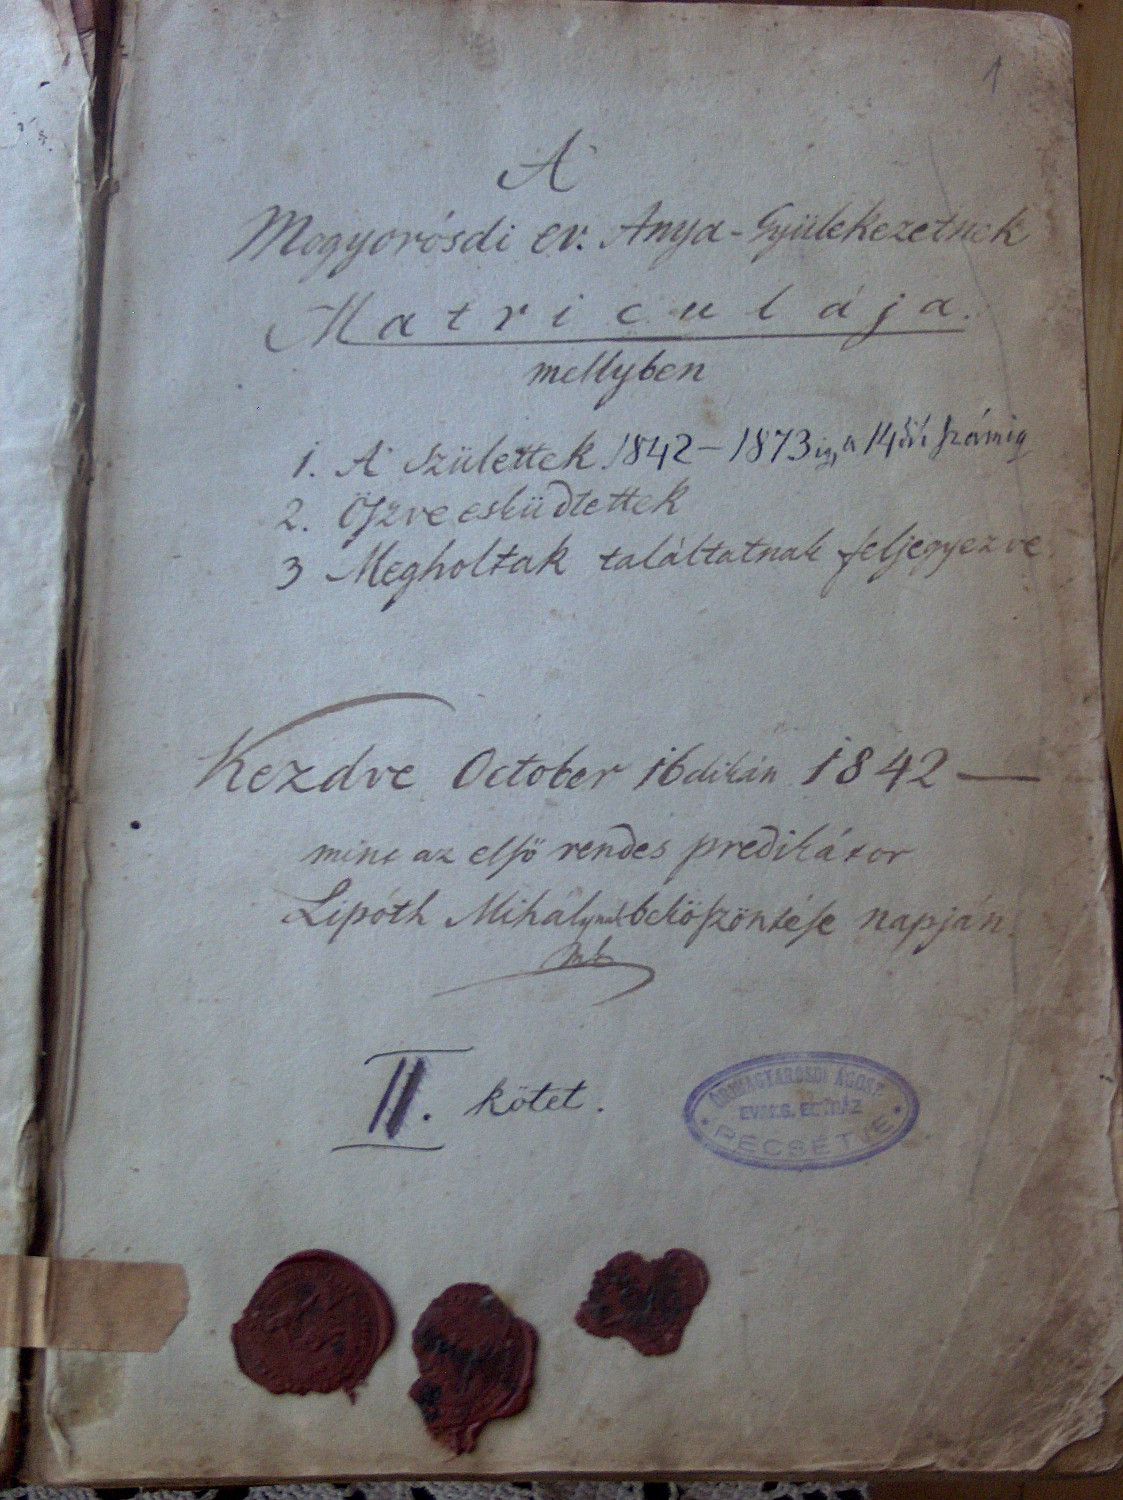 1
A
Mogyorósdi ev. Anya-Gyülekezetnek
Matriculája.
mellyben
1. A születtek 1842–1873ig, a 14dik számig
2. Öszve esküdtettek
3 Megholtak találtatnak feljegyezve
Kezdve October 16dikán 1842 —
mint az első rendes predikátor
Lipóth Mihálynak beköszöntése napján.
II. kötet.
ŐRIMAGYAROSDI ÁGOST.
EVANG. EGYHÁZ
PECSÉTJE